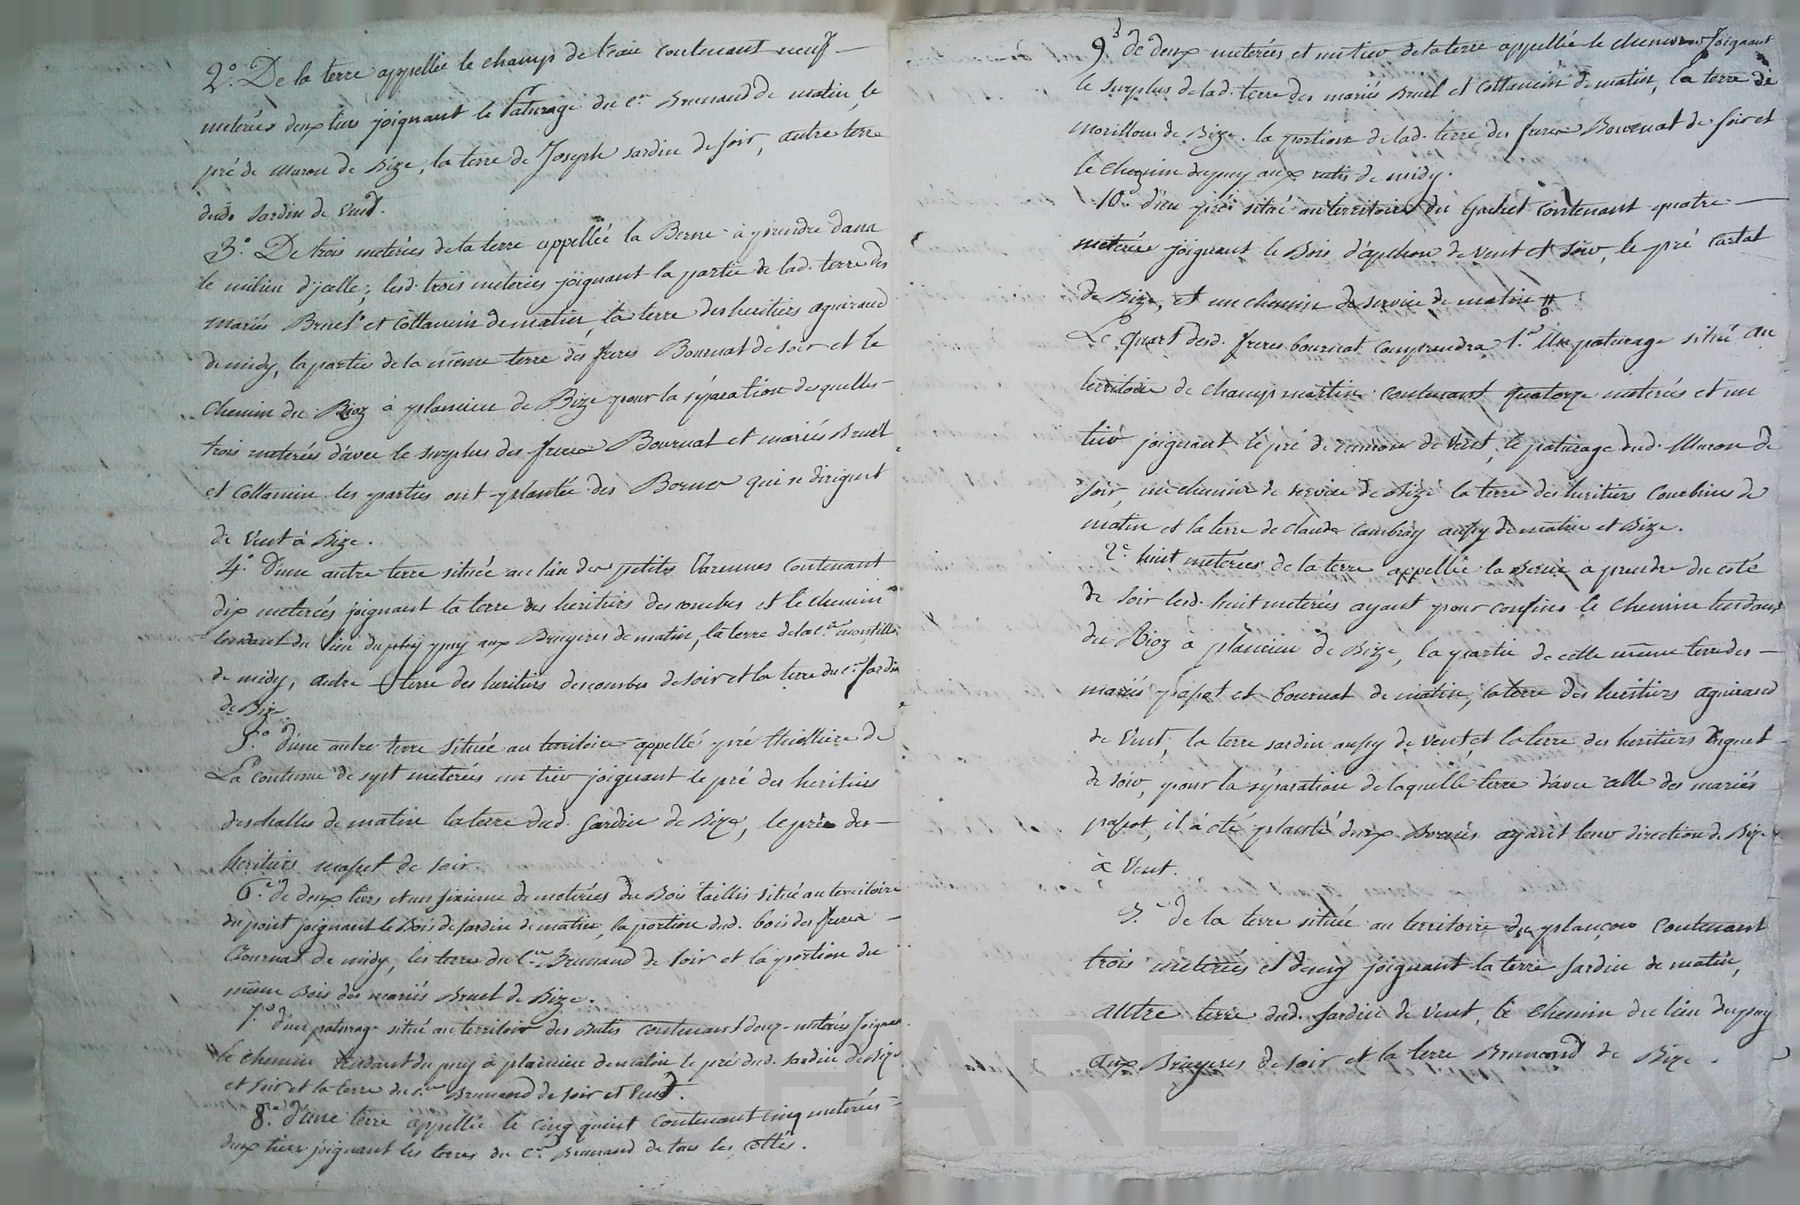 2.° De la terre appellée le champ de traie contenant neuf —
meterées deux tiers joignant le Paturage du C.en Brunand de matin, le
pré de Muron de Bize, la terre de Joseph Sardin de soir, autre terre
dud. Sardin de Vent.
3.° De trois meterées de la terre appellée la Berne à prendre dans
le milieu d'jcelle, lesd. trois meterées joignant la partie de lad. terre des
mariés Bruel et Cottancin de matin, la terre des heritiers aguiraud
de midy, la partie de la même terre des freres Bournat de soir et le
chemin du Rioz à plancieu de Bize pour la séparation desquelles —
trois meterées d'avec le surplus des freres Bournat et mariés Bruel
et Cottancin les parties ont plantée des Bornes qui se dirigent
de Vent à Bize.
4.° D'une autre terre située au lieu des petits Varennes contenant
dix meterées joignant la terre des heritiers descombes et le chemin
tendant du lieu du puy aux Bruyeres de matin, la terre de la
de midy, autre terre des heritiers descombes de soir et la terre du C.en Sardin
de Bize.
5.° d'une autre terre située au territoire appellés pré
La contenue de sept meterées un tier joignant le pré des heritiers
deschalles de matin la terre dud. Sardin de Bize, le pré des —
heritiers de soir.
6.° de deux tiers et un sixieme de meterées du Bois taillis situé au territoire
du point joignant le Bois de Sardin de matin, la portion dud. bois des freres —
Bournat de midy, les terres du C.en Brunand de soir et la portion du
même Bois des mariés Bruel de Bize.
7.° d'un paturage situé au territoire des contenant deux meterées joignant
le chemin tendant du puy à plancieu de matin le pré dud. Sardin de Bize
et soir et la terre du C.en Brunand de soir et Vent.
8.° d'une terre appellée le cinq quint contenant cinq meterées —
deux tiers joignant les terres du C.en Brunand de tous les cottés.
9.° de deux meterées et un tier de la terre appellée le joignant
le surplus de lad. terre des mariés Bruel et Cottancin de matin, la terre de
morillon de Bize. la portion de lad. terre des freres Bournat de soir et
le chemin du puy aux de midy.
10.° D'un pré situé au territoire du Gachet contenant quatre —
meterées joignant le Bois d'aplhon de Vent et soir, le pré Cartal
de Bize, et un chemin de service de matin
Le quart desd. freres bournat comprendra 1.° Un paturage situé au
territoire de champ martin contenant quatorze meterées et un
tier joignant le pré de de Vent, le paturage dud. Muron de
soir, un chemin de service de Bize la terre des heritiers Combines de
matin et la terre de claude Cambray aussy de matin et Bize.
2.° huit meterées de la terre appellée la Berne a prendre du coté
de soir lesd. huit meterées ayant pour confins le chemin tendant
du Rioz à plancieu de Bize, la partie de cette même terre des —
mariés passot et bournat de matin, la terre des heritiers aguiraud
de Vent, la terre sardin aussy de Vent et la terre des heritiers
de soir, pour la séparation de laquelle terre d'avec celle des mariés
passot, il a été planté deux Bornes ayant leur direction de Bize
à Vent.
3.° de la terre située au territoire du plançon contenant
trois meterées et demy joignant la terre Sardin de matin,
autre terre dud. Sardin de Vent, le chemin du lieu du puy
aux Bruyeres de soir et la terre Brunand de Bize.